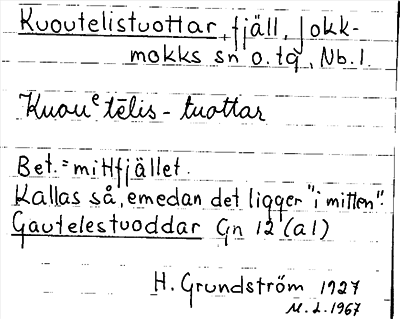 Kuoutelistuottar, fjäll, Jokk-
mokks sn o. tg, Nb. l.
Kuouᵉtēlis-tuottar
Bet. = mittfjället.
Kallas så, emedan det ligger "i mitten".
Gautelestuoddar Gn 12 (a1)
H. Grundström 1927
M. L. 1967